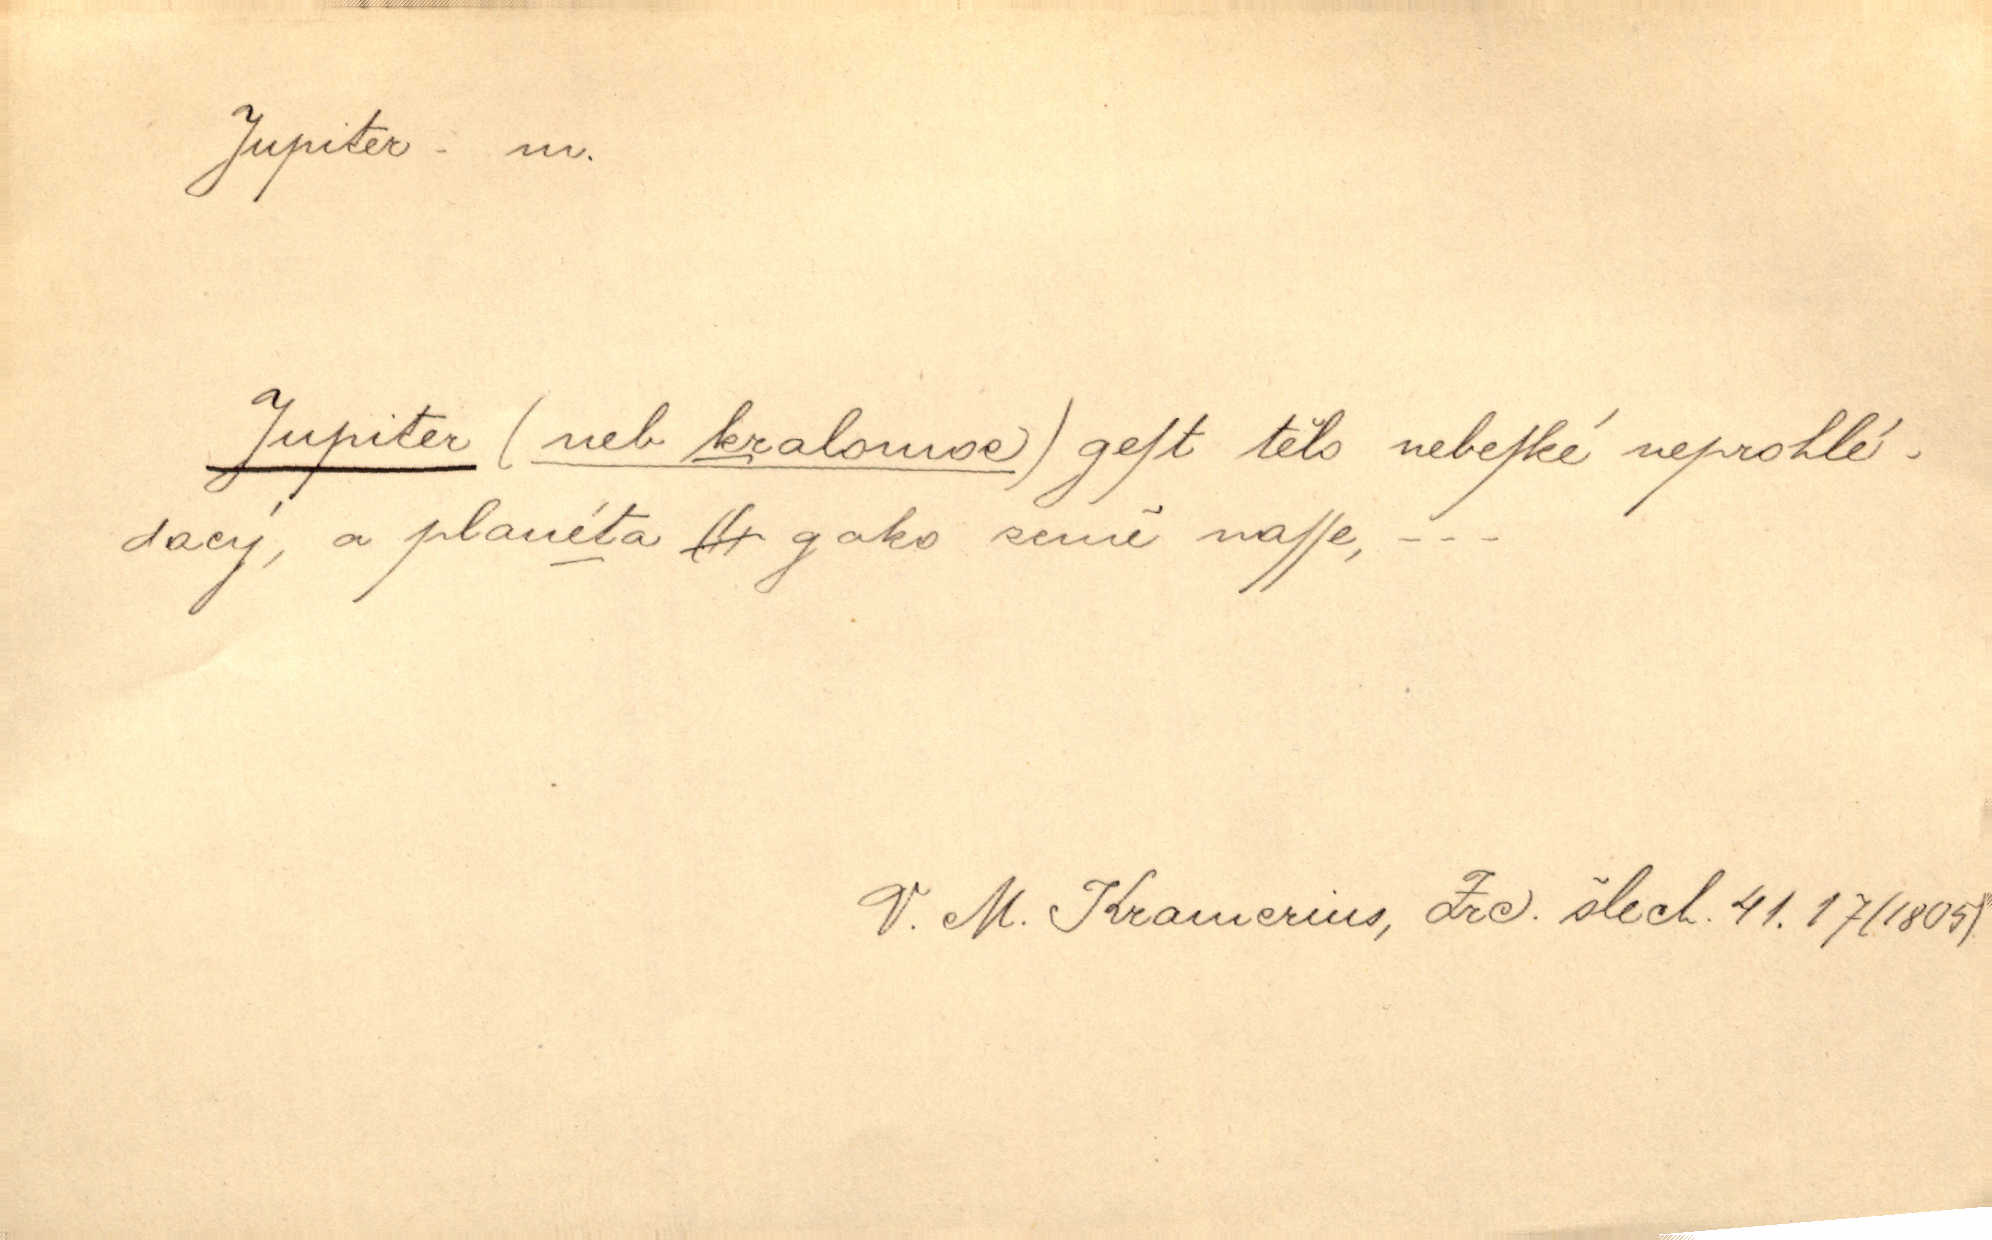 Jupiter - m.
Jupiter (neb kralomoc) geſt tělo nebeſké neprohlé-
dacý, a planéta gako země naſſe, ---
V. M. Kramerius, Zrc. šlech. 41. 17 (1805)